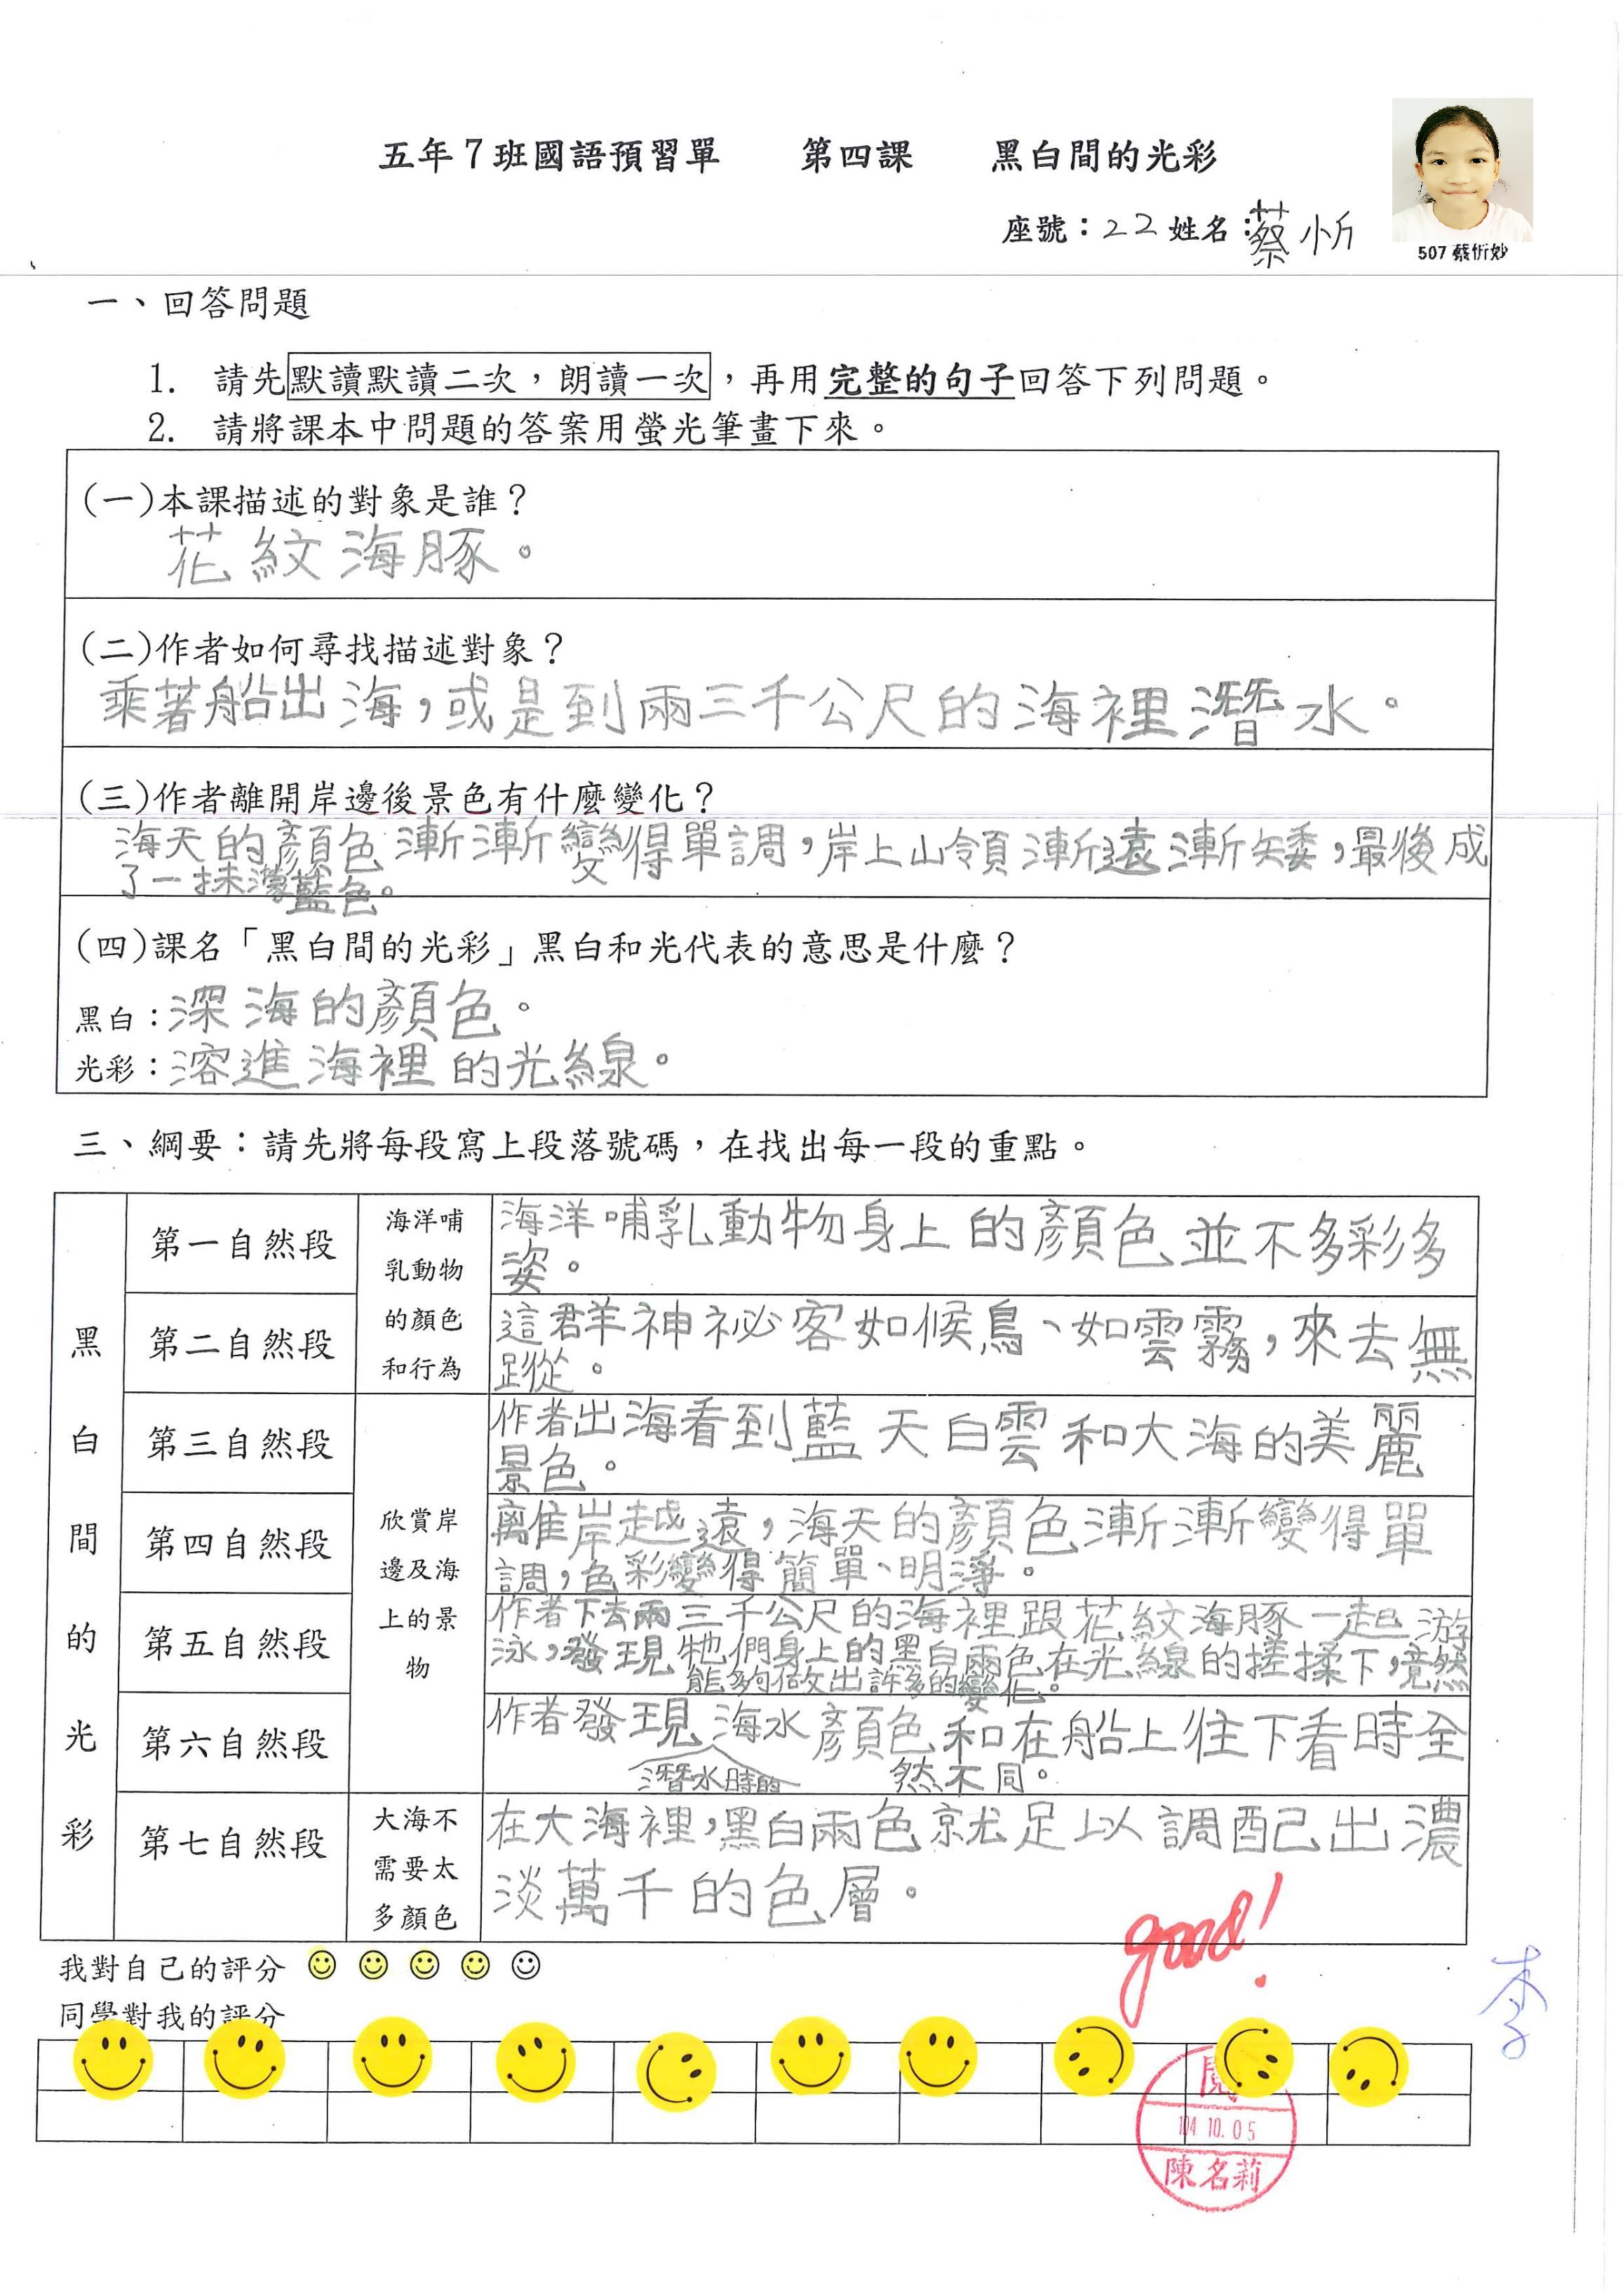 五年7班國語預習單 第四課 黑白間的光彩
座號：22 姓名：蔡忻
507 蔡忻妙
一、回答問題
1. 請先默讀默讀二次，朗讀一次，再用完整的句子回答下列問題。
2. 請將課本中問題的答案用螢光筆畫下來。
(一)本課描述的對象是誰？
花紋海豚。
(二)作者如何尋找描述對象？
乘著船出海，或是到兩三千公尺的海裡潛水。
(三)作者離開岸邊後景色有什麼變化？
海天的顏色漸漸變得單調，岸上山領漸遠漸矮，最後成
了一抹濛藍色。
(四)課名「黑白間的光彩」黑白和光代表的意思是什麼？
黑白：深海的顏色。
光彩：溶進海裡的光線。
三、綱要：請先將每段寫上段落號碼，在找出每一段的重點。
黑白間的光彩
第一自然段
海洋哺
乳動物
的顏色
和行為
海洋哺乳動物身上的顏色並不多彩多
姿。
第二自然段
這群神祕客如候鳥、如雲霧，來去無
蹤。
第三自然段
欣賞岸
邊及海
上的景
物
作者出海看到藍天白雲和大海的美麗
景色。
第四自然段
離岸越遠，海天的顏色漸漸變得單
調，色彩變得簡單、明淨。
第五自然段
作者下去兩三千公尺的海裡跟花紋海豚一起游
泳，發現牠們身上的黑白兩色在光線的搓揉下，竟然
能夠做出許多的變化。
第六自然段
作者發現海水顏色和在船上往下看時全
潛水時的 然不同。
第七自然段
大海不
需要太
多顏色
在大海裡，黑白兩色就足以調配出濃
淡萬千的色層。
good!
我對自己的評分
李
同學對我的評分
閱
104.10.05
陳名莉